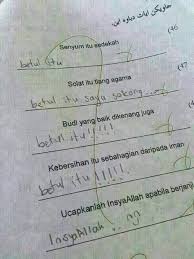 حاويكن ايات دباوه اين
(٤٦
Senyum itu sedekah
betul itu
Solat itu tiang agama
betul itu saya sokong...
(٤٧
Budi yang baik dikenang juga
betul itu!!!!!
Kebersihan itu sebahagian daripada iman
betul itu!!!!!
Ucapkanlah InsyaAllah apabila berjanji
InsyaAllah ...